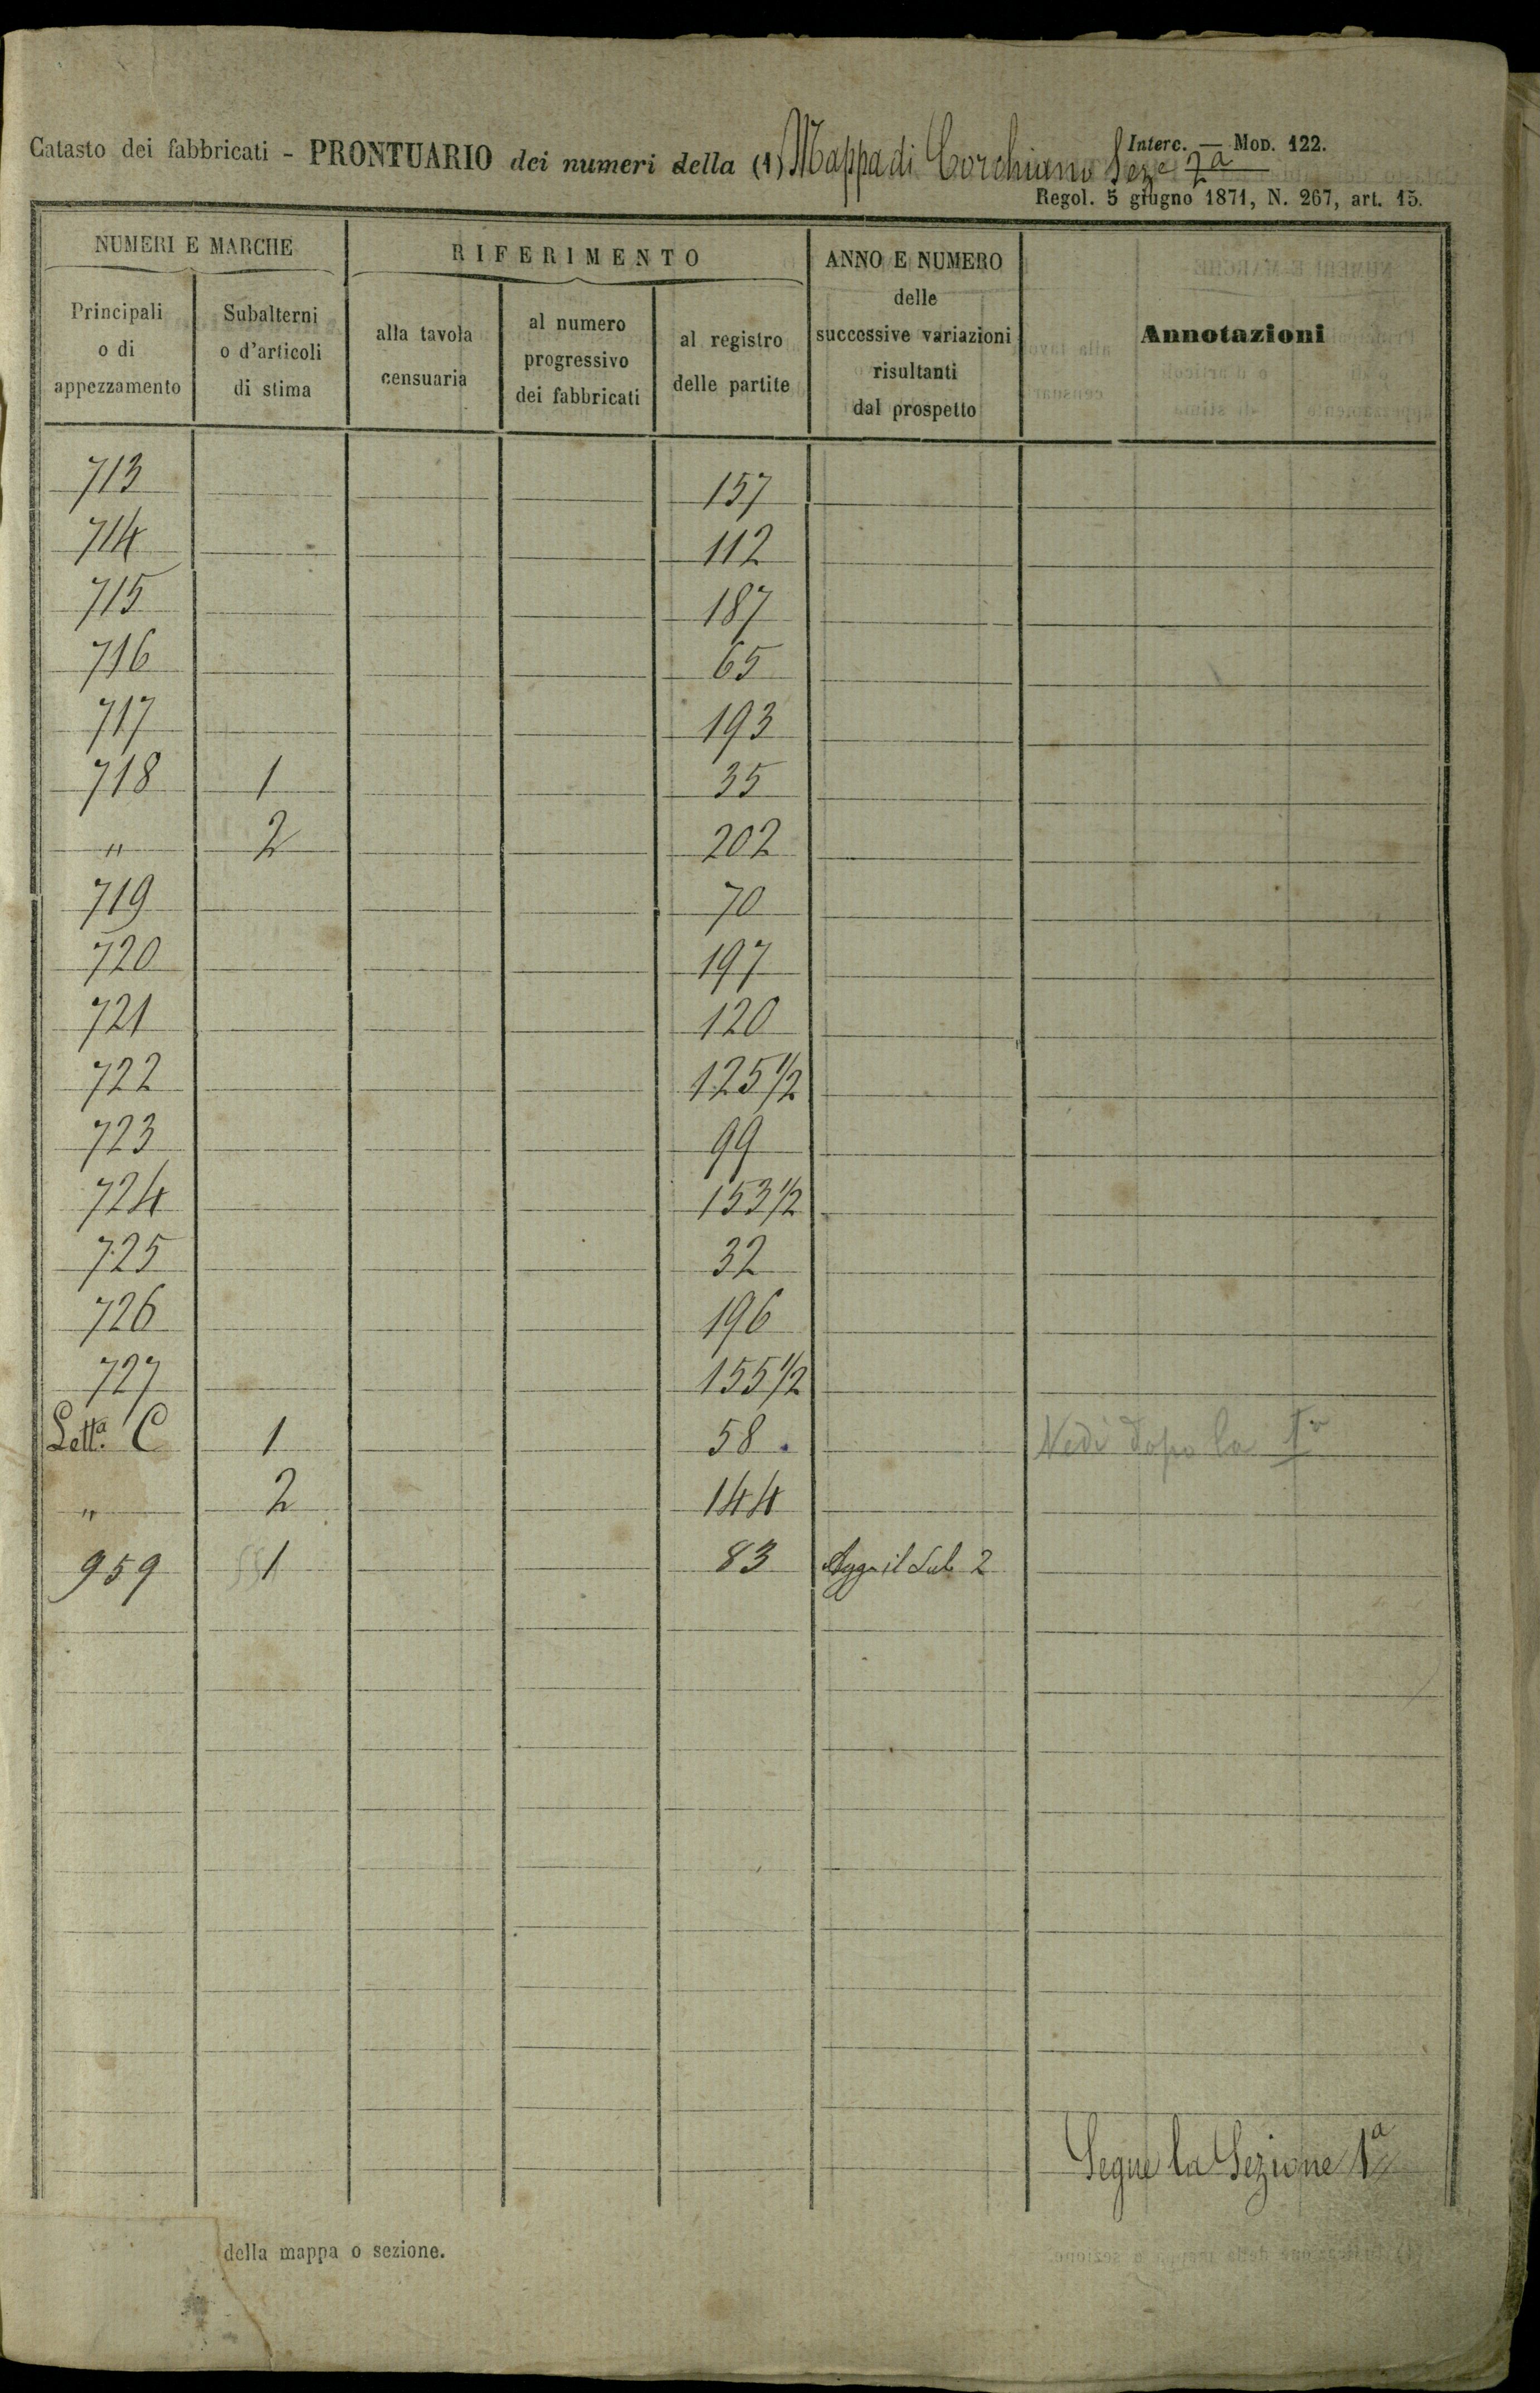 Catasto dei fabbricati - PRONTUARIO dei numeri della (1) Mappa di Corchiano Seze 2a
Interc. — Mod. 122.
Regol. 5 giugno 1871, N. 267, art. 15.
NUMERI E MARCHE
RIFERIMENTO
ANNO E NUMERO
delle
successive variazioni
risultanti
dal prospetto
Annotazioni
Principali
o di
appezzamento
Subalterni
o d'articoli
di stima
alla tavola
censuaria
al numero
progressivo
dei fabbricati
al registro
delle partite
713 157
714 112
715 187
716 65
717 193
718 1 35
" 2 202
719 70
720 197
721 120
722 125 1/2
723 99
724 153 1/2
725 32
726 196
727 155 1/2
Letta. C 1 58 Vedi dopo la 1a
" 2 144
959 1 83 Agg. il Sub 2
Segue la Sezione 1a
della mappa o sezione.